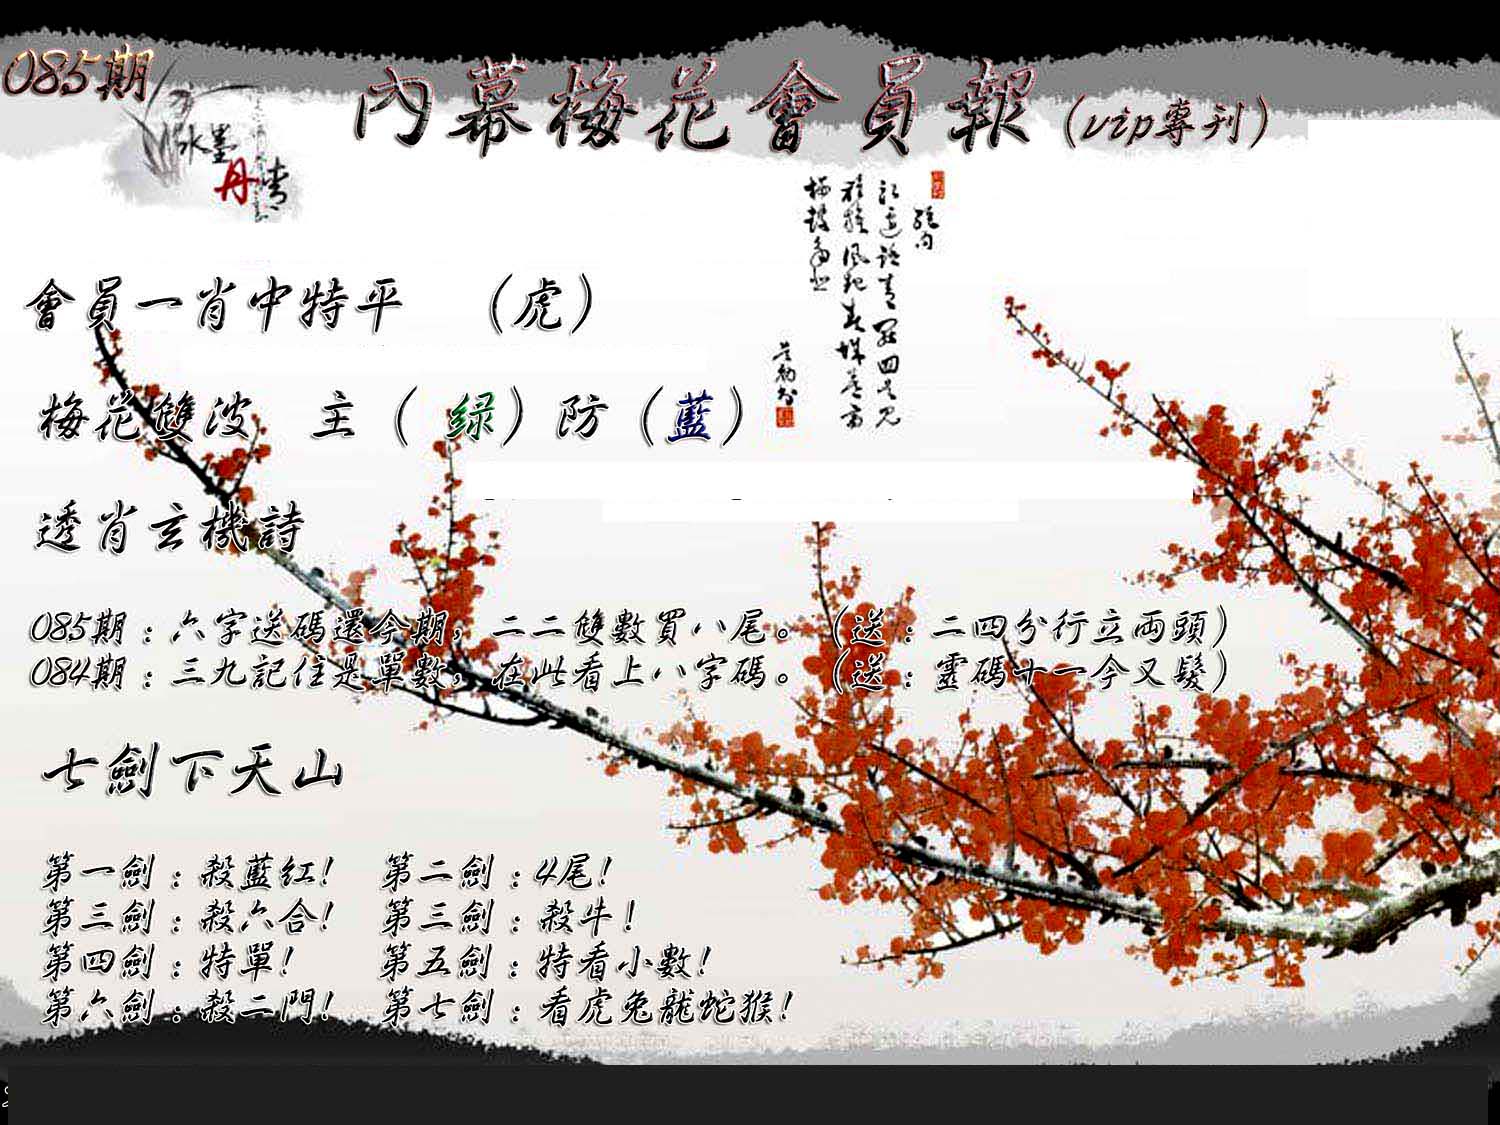 085期
內幕梅花會員報（vip專刊）
水墨
丹青
會員一肖中特平 （虎）
梅花雙波 主（绿）防（藍）
透肖玄機詩
085期：六字送碼還今期，二二雙數買八尾。（送：二四分行立両頭）
084期：三九記住是單數，在此看上八字碼。（送：靈碼十一今又髮）
七劍下天山
第一劍：殺藍红！ 第二劍：4尾！
第三劍：殺六合！ 第三劍：殺牛！
第四劍：特單！ 第五劍：特看小數！
第六劍：殺二門！ 第七劍：看虎兔龍蛇猴！